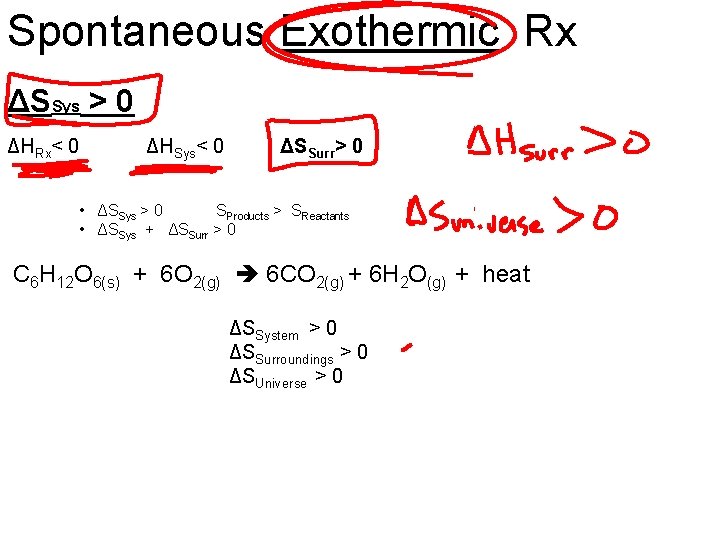 Spontaneous Exothermic Rx
ΔSSys > 0
ΔHRx< 0 ΔHSys< 0 ΔSSurr> 0 ΔHSurr > 0
• ΔSSys > 0 SProducts > SReactants
• ΔSSys + ΔSSurr > 0 ΔSuniverse > 0
C6H12O6(s) + 6O2(g) → 6CO2(g) + 6H2O(g) + heat
ΔSSystem > 0
ΔSSurroundings > 0
ΔSUniverse > 0